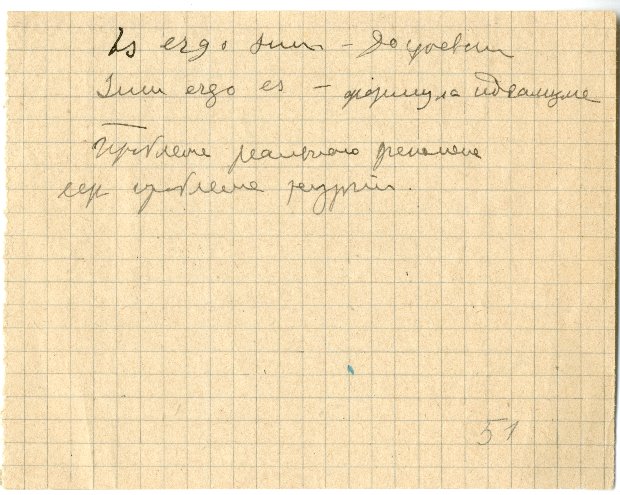 Es ergo sum – Достоевский
Sum ergo es – формула идеализма
Проблема реального феномена
есть проблема
51